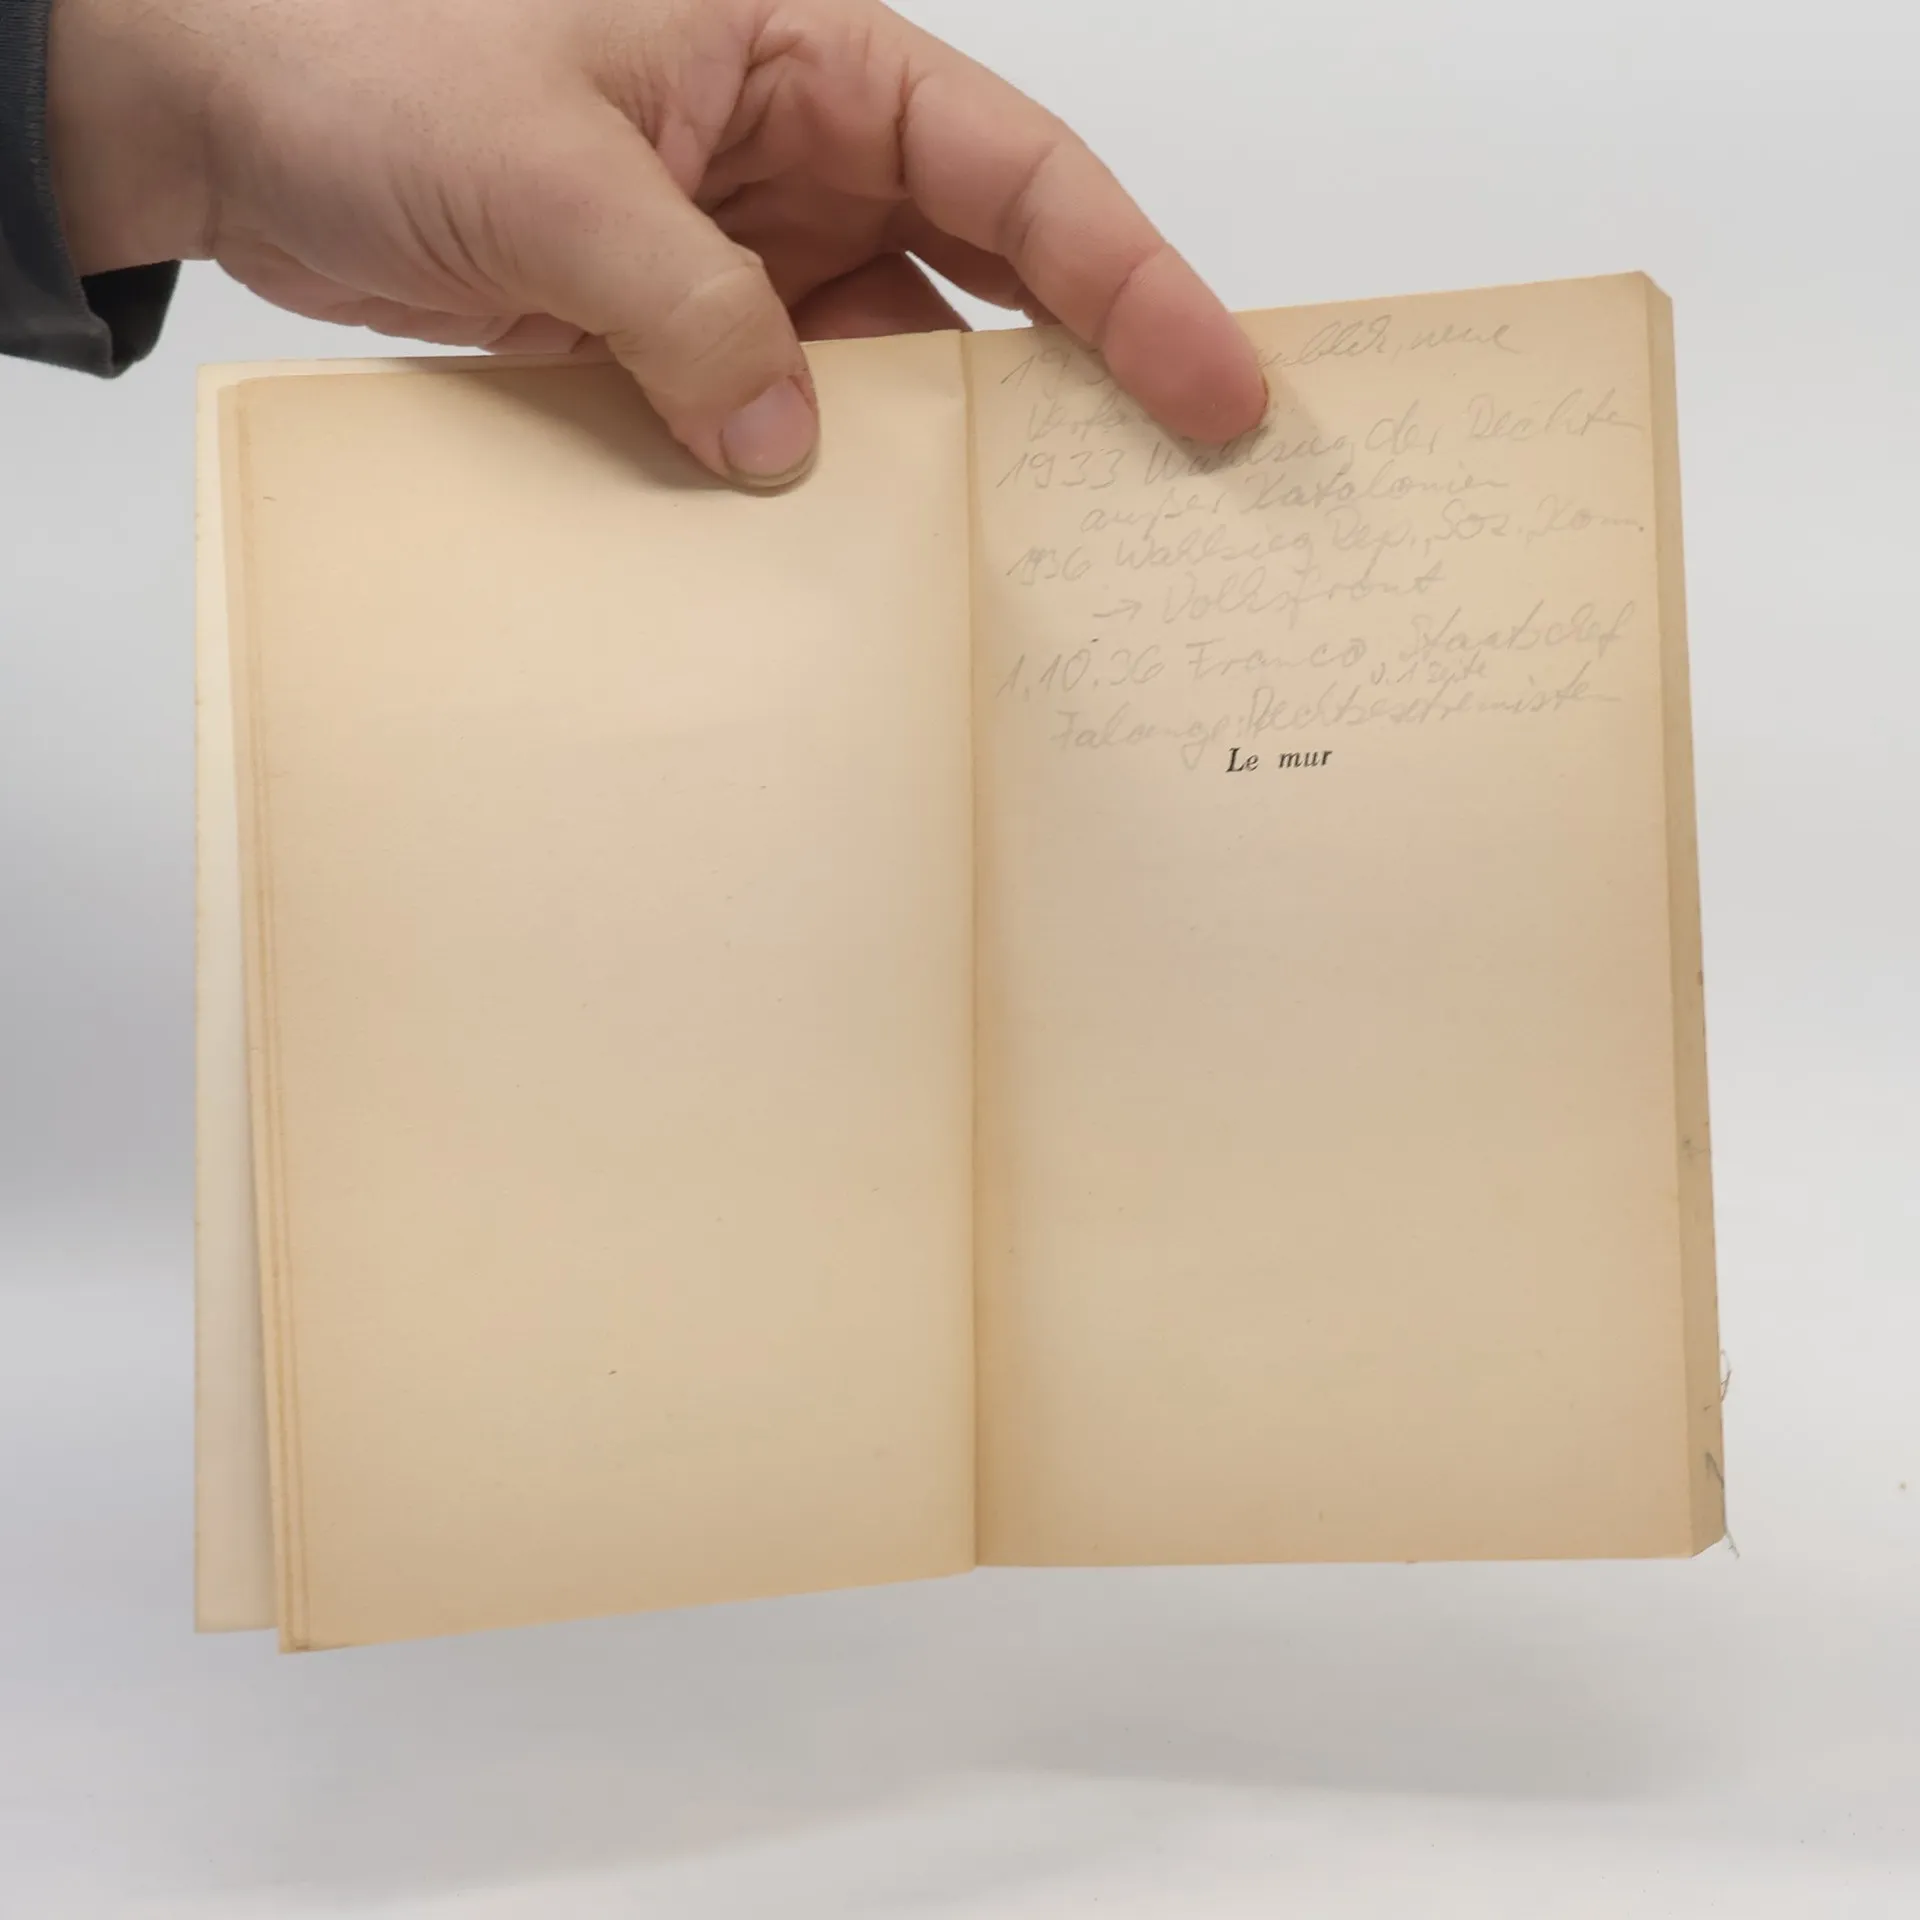 193 ublik, neue
Verfa
1933 Wahlsieg der Rechten
außer Katalonien
1936 Wahlsieg Rep., Soz., Kom.
→ Volksfront
1.10.36 Franco Staatschef
Falange: Rechtsextremisten
Le mur